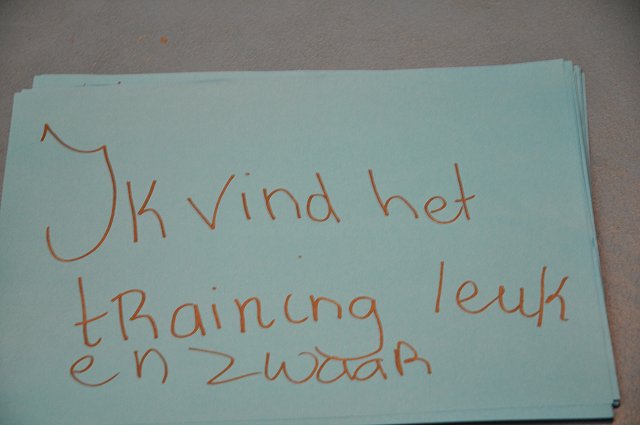 Ik vind het
tRaining leuk
en zwaaR